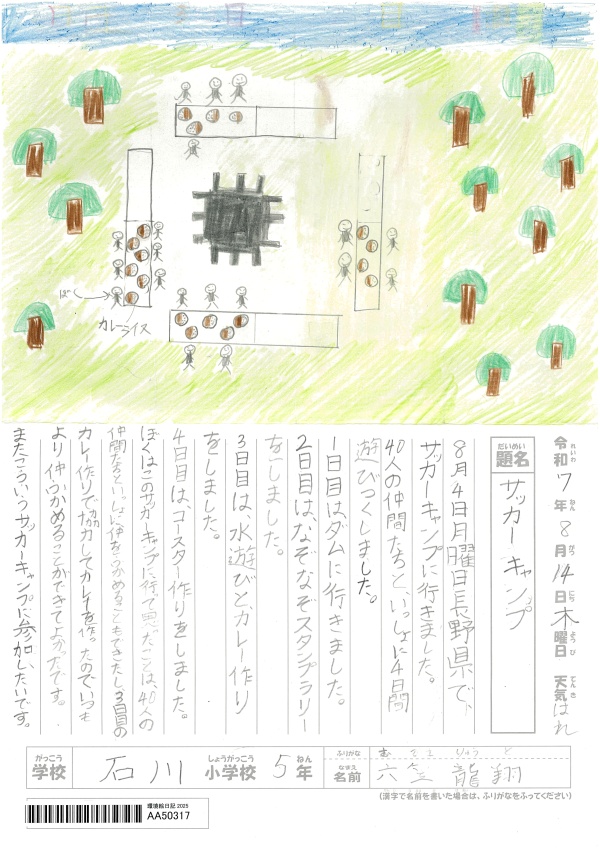 ぼく
カレーライス
令和7年8月14日木曜日 天気はれ
れいわ ねん がつ にち ようび てんき
だいめい
題名 サッカーキャンプ
8月4日月曜日長野県で、
サッカーキャンプに行きました。
40人の仲間たちと、いっしょに4日間
遊びつくしました。
1日目はダムに行きました。
2日目は、なぞなぞスタンプラリー
をしました。
3日目は、水遊びと、カレー作り
をしました。
4日目は、コースター作りをしました。
ぼくはこのサッカーキャンプに行って思ったことは、40人の
仲間たちといっしょに仲をふかめることもできたし、3日目の
カレー作りで協力してカレーを作ったのでいつも
より仲ふかめることができてよかったです。
またこういうサッカーキャンプに参加したいです。
がっこう しょうがっこう ねん
学校 石川 小学校 5年
ふりがな りゅう と
なまえ
名前 六笠 龍翔
(漢字で名前を書いた場合は、ふりがなをふってください)
環境絵日記2025
AA50317